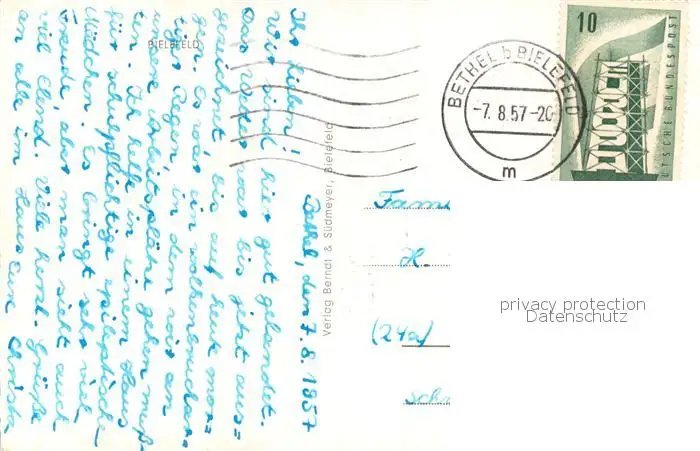 BIELEFELD
Bethel, den 7.8.1957
Ihr Lieben!
Wir sind hier gut gelandet.
Das Wetter war bis jetzt aus=
gezeichnet bis auf heute mor=
gen. Es war ein wolkenbruchar=
tiger Regen in dem wir an
unsere Arbeitsplätze gehen muß=
ten. Ich helfe in einem Haus
für schulpflichtige epileptische
Mädchen. Es bringt sehr viel
Freude, aber man sieht auch
viel Elend. Viele herzl. Grüße
an alle im Haus Eure Christa
Verlag Berndt & Südmeyer, Bielefeld
BETHEL b BIELEFELD
-7.8.57-20
m
10
UTSCHE BUNDESPOST
Fami
H.
(24a)
Sch
privacy protection
Datenschutz